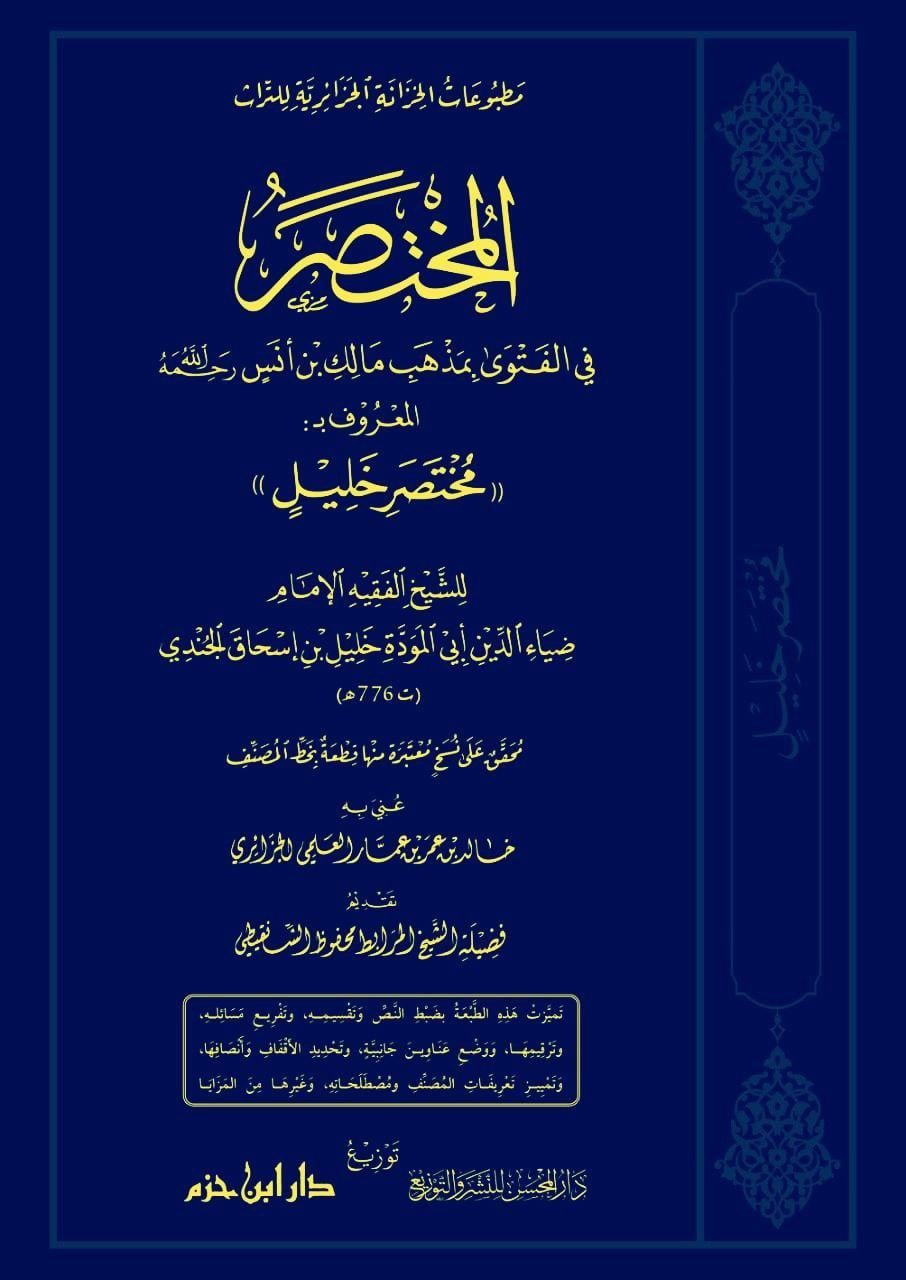 مَطْبُوعَاتُ الخِزَانَةِ الجَزَائِرِيَّةِ لِلتُّرَاث
المُخْتَصَرُ
فِي الفَتْوَى بِمَذْهَبِ مَالِكِ بْنِ أَنَسٍ رَحِمَهُ اللَّهُ
المَعْرُوْف بـ :
((مُخْتَصَرِ خَلِيْلٍ))
لِلشَّيْخِ الفَقِيْهِ الإِمَامِ
ضِيَاءِ الدِّيْنِ أَبِيْ المَوَدَّةِ خَلِيْلِ بْنِ إِسْحَاقَ الجُنْدِي
(ت 776 هـ)
مُحَقَّقٌ عَلَى نُسَخٍ مُعْتَبَرَة مِنْهَا قِطْعَةٌ بِخَطِّ المُصَنِّفِ
عُنِيَ بِهِ
خالد بن عمر بن عمَّار العلمي الجزائري
تَقْدِيْمُ
فَضِيْلَةِ الشَّيْخِ المرابط محفوظ الشنقيطي
تَمَيَّزَتْ هَذِهِ الطَّبْعَةُ بِضَبْطِ النَّصِّ وَتَقْسِيمِهِ، وتَفْرِيعِ مَسَائِلِهِ،
وتَرْقِيمِهَا، وَوَضْعِ عَنَاوِينَ جَانِبِيَّةٍ، وتَحْدِيدِ الأَقْفَافِ وَأَنْصَافِهَا،
وَتَمْيِيزِ تَعْرِيفَاتِ المُصَنِّفِ ومُصْطَلَحَاتِهِ، وَغَيْرِهَا مِنَ المَزَايَا
تَوْزِيْعُ
دَارُ المُحْسِن لِلنَّشْرِ وَالتَّوْزِيْعِ
دار ابن حزم
مُخْتَصَرُ خَلِيْلٍ